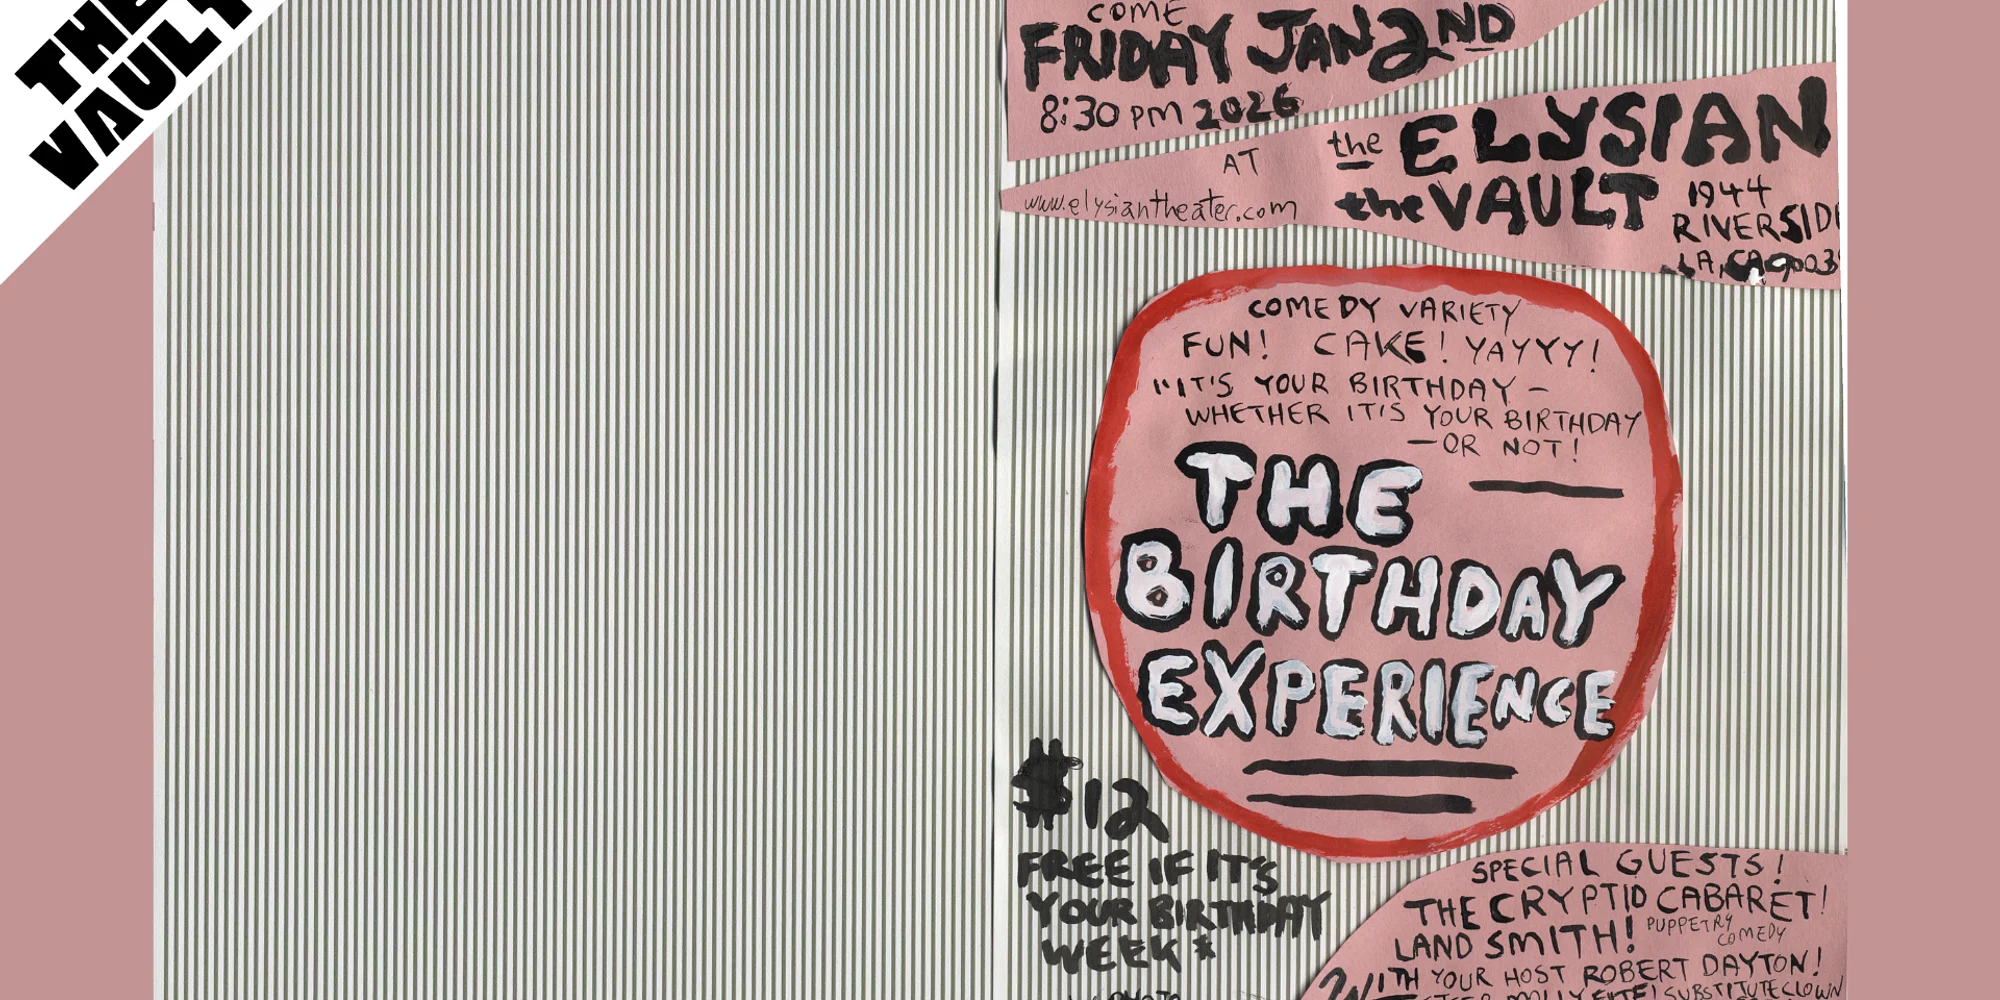 THE
VAULT
COME
FRIDAY JAN 2ND
8:30 PM 2026
AT
www.elysiantheater.com
the ELYSIAN
the VAULT
1944
RIVERSIDE
LA, CA 9003
COMEDY VARIETY
FUN! CAKE! YAYYY!
"IT'S YOUR BIRTHDAY -
WHETHER IT'S YOUR BIRTHDAY
- OR NOT!
THE
BIRTHDAY
EXPERIENCE
$12
FREE IF IT'S
YOUR BIRTHDAY
WEEK *
SPECIAL GUESTS!
THE CRYPTID CABARET!
LAND SMITH! PUPPETRY
COMEDY
WITH YOUR HOST ROBERT DAYTON!
MOLLY SUBSTITUTE CLOWN